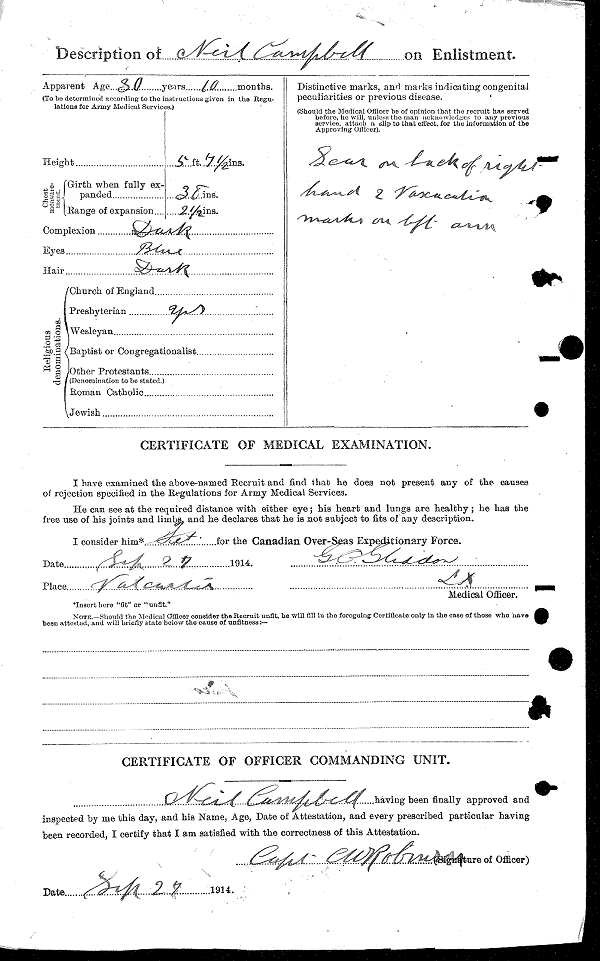 Description of Neil Campbell on Enlistment.
Apparent Age 30 years 10 months.
(To be determined according to the instructions given in the Regu-
lations for Army Medical Services.)
Height 5 ft. 7 1/2 ins.
Chest measurement. Girth when fully ex-
panded 38 ins.
Range of expansion 2 1/2 ins.
Complexion Dark
Eyes Blue
Hair Dark
Religious denominations.
Church of England
Presbyterian yes
Wesleyan
Baptist or Congregationalist
Other Protestants
(Denomination to be stated.)
Roman Catholic
Jewish
Distinctive marks, and marks indicating congenital
peculiarities or previous disease.
(Should the Medical Officer be of opinion that the recruit has served
before, he will, unless the man acknowledges to any previous
service, attach a slip to that effect, for the information of the
Approving Officer).
Scar on back of right
hand 2 Vaccination
marks on left arm
CERTIFICATE OF MEDICAL EXAMINATION.
I have examined the above-named Recruit and find that he does not present any of the causes
of rejection specified in the Regulations for Army Medical Services.
He can see at the required distance with either eye; his heart and lungs are healthy; he has the
free use of his joints and limbs, and he declares that he is not subject to fits of any description.
I consider him* Fit for the Canadian Over-Seas Expeditionary Force.
Date Sep 27 1914.
Place Valcartier
Medical Officer.
*Insert here "fit" or "unfit."
NOTE.—Should the Medical Officer consider the Recruit unfit, he will fill in the foregoing Certificate only in the case of those who have
been attested, and will briefly state below the cause of unfitness:—
CERTIFICATE OF OFFICER COMMANDING UNIT.
Neil Campbell having been finally approved and
inspected by me this day, and his Name, Age, Date of Attestation, and every prescribed particular having
been recorded, I certify that I am satisfied with the correctness of this Attestation.
Capt (Signature of Officer)
Date Sep 27 1914.